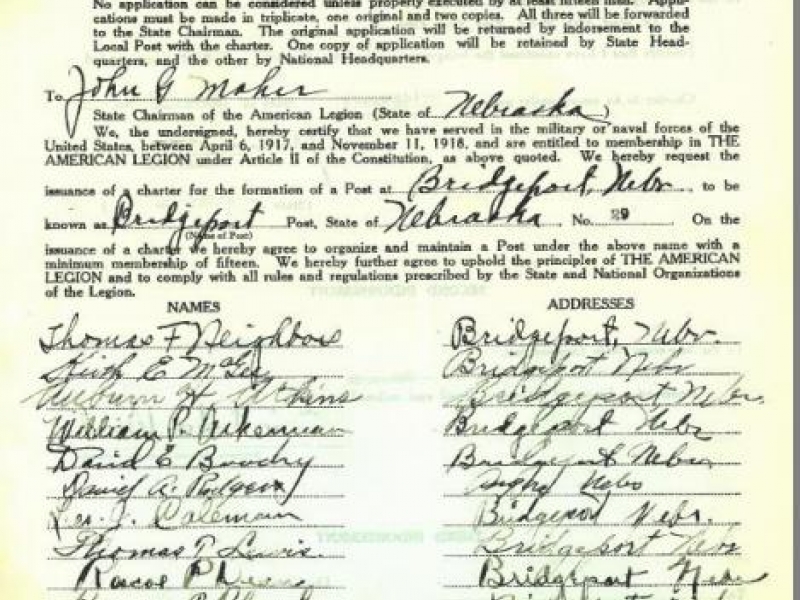 No application can be considered unless properly executed by at least fifteen men. Appli-
cations must be made in triplicate, one original and two copies. All three will be forwarded
to the State Chairman. The original application will be returned by indorsement to the
Local Post with the charter. One copy of application will be retained by State Head-
quarters, and the other by National Headquarters.
To John G Maher
State Chairman of the American Legion (State of Nebraska)
We, the undersigned, hereby certify that we have served in the military or naval forces of the
United States, between April 6, 1917, and November 11, 1918, and are entitled to membership in THE
AMERICAN LEGION under Article II of the Constitution, as above quoted. We hereby request the
issuance of a charter for the formation of a Post at Bridgeport, Nebr. to be
known as Bridgeport Post, State of Nebraska, No. 29 On the
(Name of Post)
issuance of a charter we hereby agree to organize and maintain a Post under the above name with a
minimum membership of fifteen. We hereby further agree to uphold the principles of THE AMERICAN
LEGION and to comply with all rules and regulations prescribed by the State and National Organizations
of the Legion.
NAMES ADDRESSES
Thomas F Neighbors Bridgeport, Nebr.
Keith E McGee Bridgeport Nebr
Auburn H Atkins Bridgeport Nebr.
William P. Ankerman Bridgeport Nebr
David E Boodry Bridgeport Nebr
David A. Rodgers Nebr
Leo. J. Coleman Bridgeport Nebr.
Thomas T. Lewis. Bridgeport Nebr
Roscoe P Bridgeport Nebr